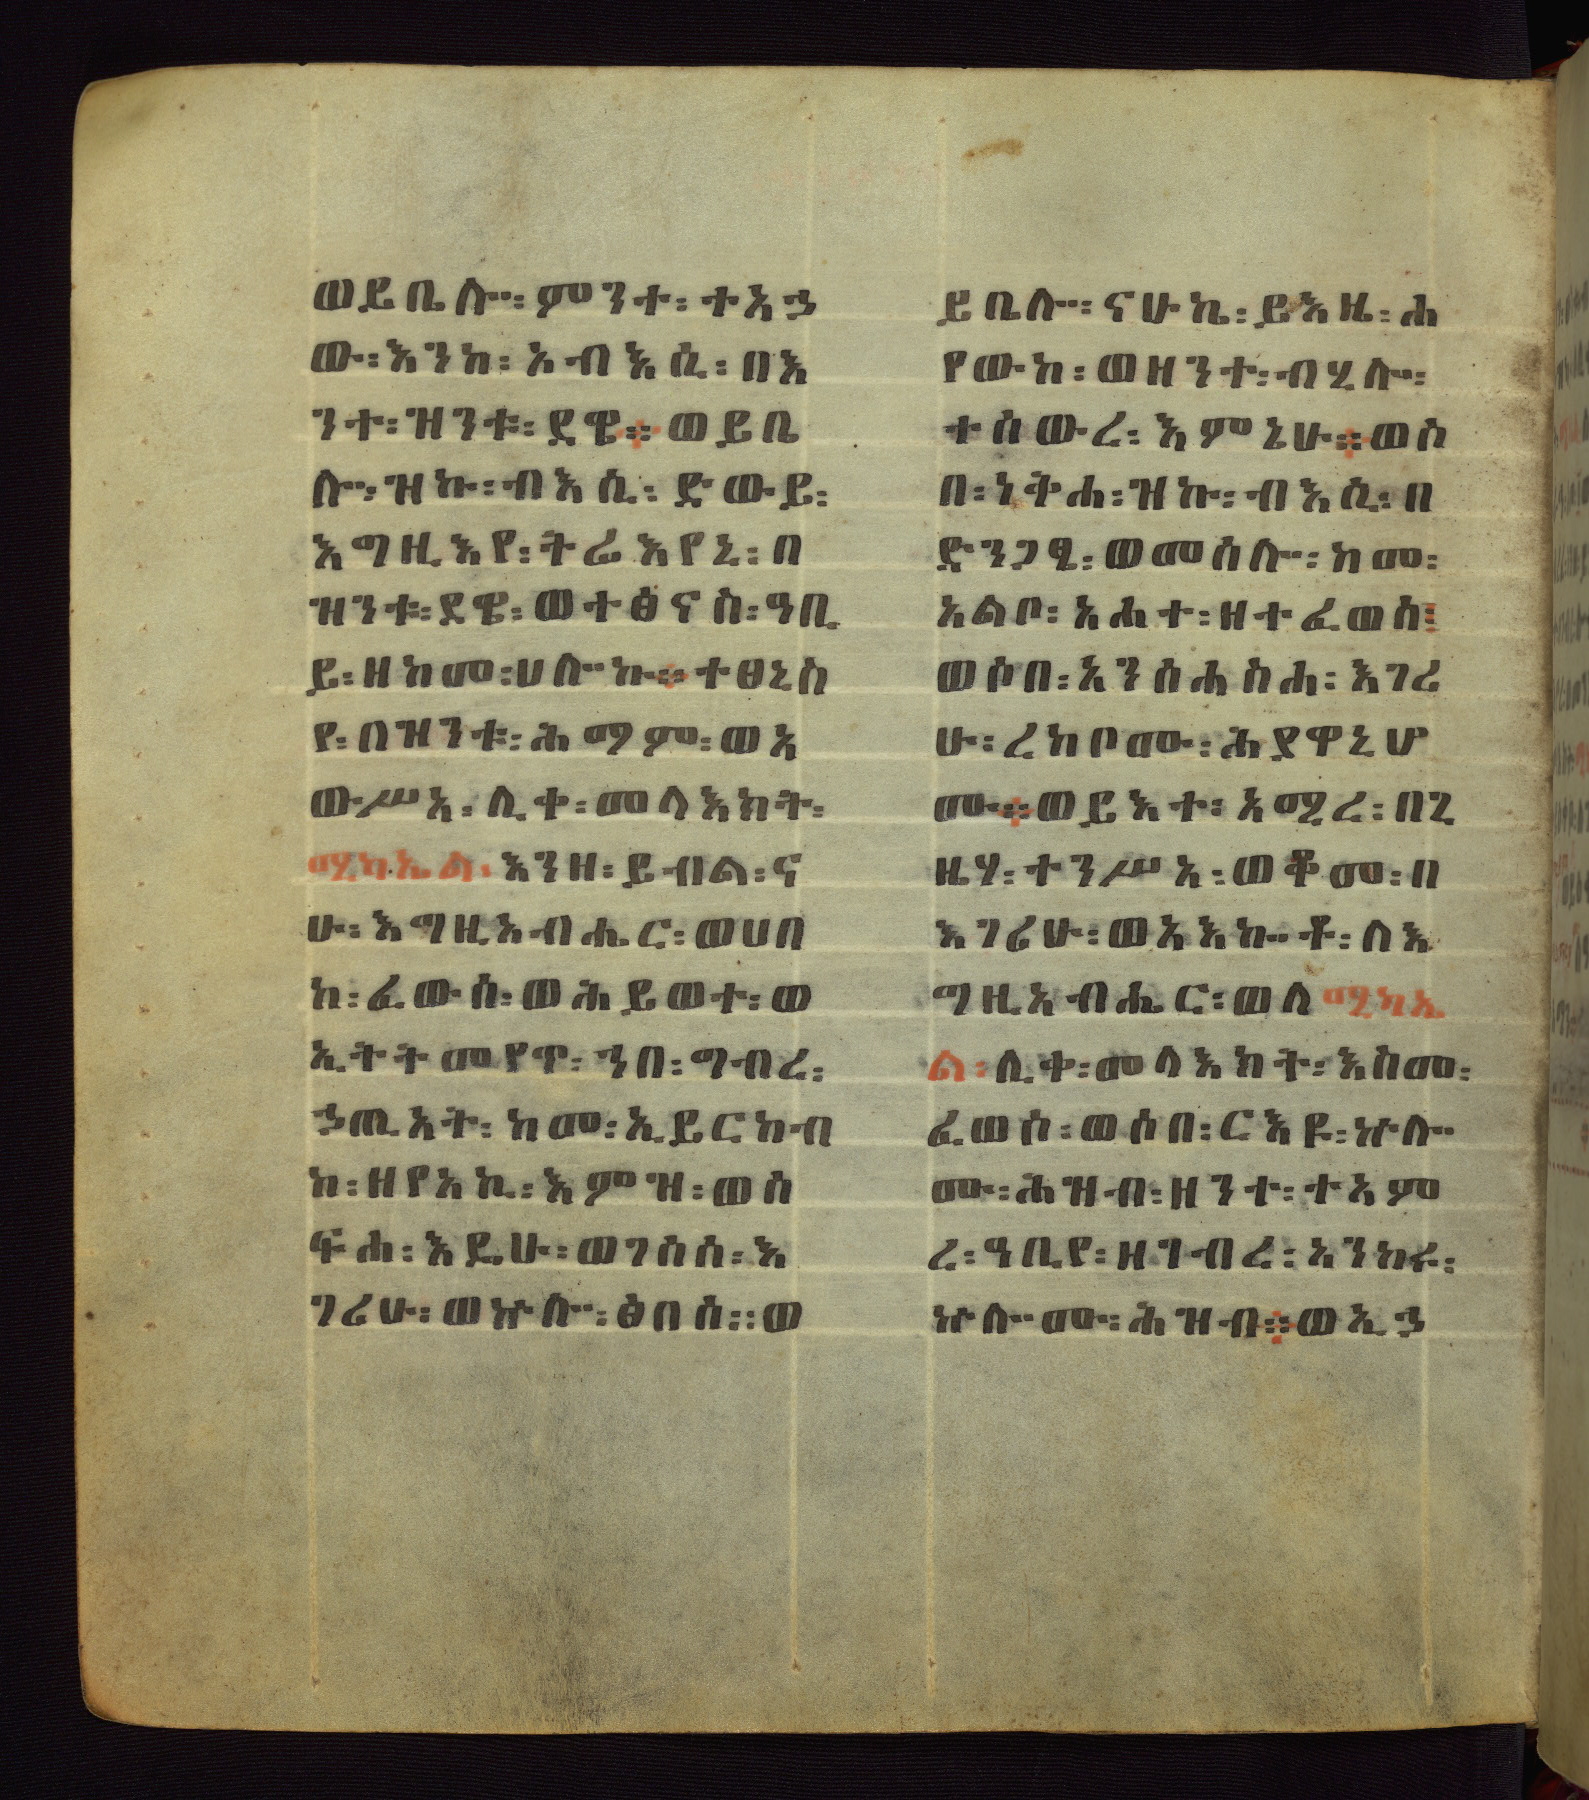 ወይቤሉ፡ምንተ፡ተአኃ
ው፡እንከ፡አብእሲ፡በእ
ንተ፡ዝንቱ፡ደዌ። ወይቤ
ሉ፡ዝኩ፡ብእሲ፡ድውይ፡
እግዚእየ፡ትሬእየኒ፡በ
ዝንቱ፡ደዌ፡ወተፅናስ፡ዓቢ
ይ፡ዘከመ፡ሀሎኩ።ተፀኒስ
የ፡በዝንቱ፡ሕማም፡ወአ
ውሥአ፡ሊቀ፡መላእክት፡
ሚካኤል፡እንዘ፡ይብል፡ና
ሁ፡እግዚአብሔር፡ወሀበ
ከ፡ፈውሰ፡ወሕይወተ፡ወ
ኢትትመየጥ፡ኀበ፡ግብረ፡
ኃጢአት፡ከመ፡ኢይርከብ
ከ፡ዘየአኪ፡እምዝ፡ወሰ
ፍሐ፡እዴሁ፡ወገሰሰ፡እ
ገሪሁ፡ወኵሎ፡ፅበሰ።ወ
ይቤሎ፡ናሁኬ፡ይእዜ፡ሐ
የውከ፡ወዘንተ፡ብሂሎ፡
ተሰውረ፡እምኔሁ።ወሶ
በ፡ነቅሐ፡ዝኩ፡ብእሲ፡በ
ድንጋፄ፡ወመሰሎ፡ከመ፡
አልቦ፡አሐተ፡ዘተፈወሰ፡
ወሶበ፡አንሰሐስሐ፡እገሪ
ሁ፡ረከቦሙ፡ሕያዋኒሆ
ሙ።ወይእተ፡አሜረ፡በጊ
ዜሃ፡ተንሥአ፡ወቆመ፡በ
እገሪሁ፡ወአእኰቶ፡ለእ
ግዚአብሔር፡ወለሚካኤ
ል፡ሊቀ፡መላእክት፡እስመ፡
ፈወሶ፡ወሶበ፡ርእዩ፡ኵሎ
ሙ፡ሕዝብ፡ዘንተ፡ተአም
ረ፡ዓቢየ፡ዘገብረ፡አንከሩ፡
ኵሎሙ፡ሕዝብ።ወኢኃ